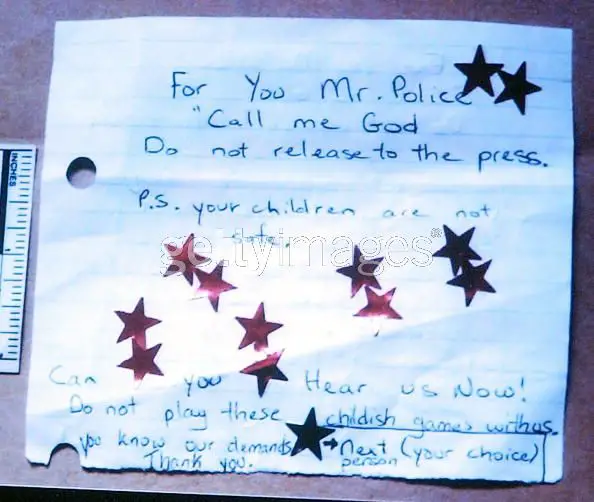 For You Mr. Police
"Call me God
Do not release to the press.
P.S. your children are not
safe.
gettyimages®
INCHES
Can you Hear us Now!
Do not play these childish games with us.
you know our demands → Next (your choice)
Thank you. person